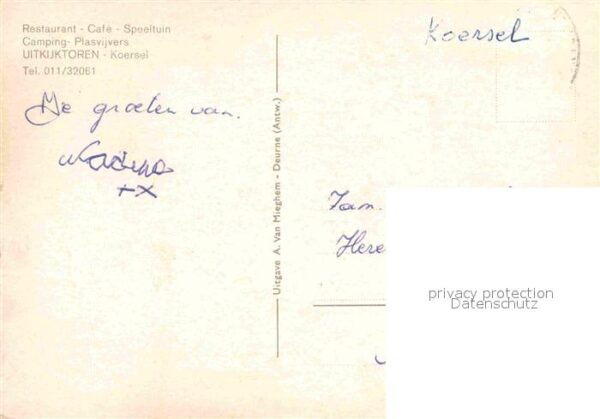 Restaurant - Café - Speeltuin
Camping - Plasvijvers
UITKIJKTOREN - Koersel
Tel. 011/32061
Koersel
De groeten van.
+x
Uitgave A. Van Mieghem - Deurne (Antw.)
Fam.
Here
privacy protection
Datenschutz